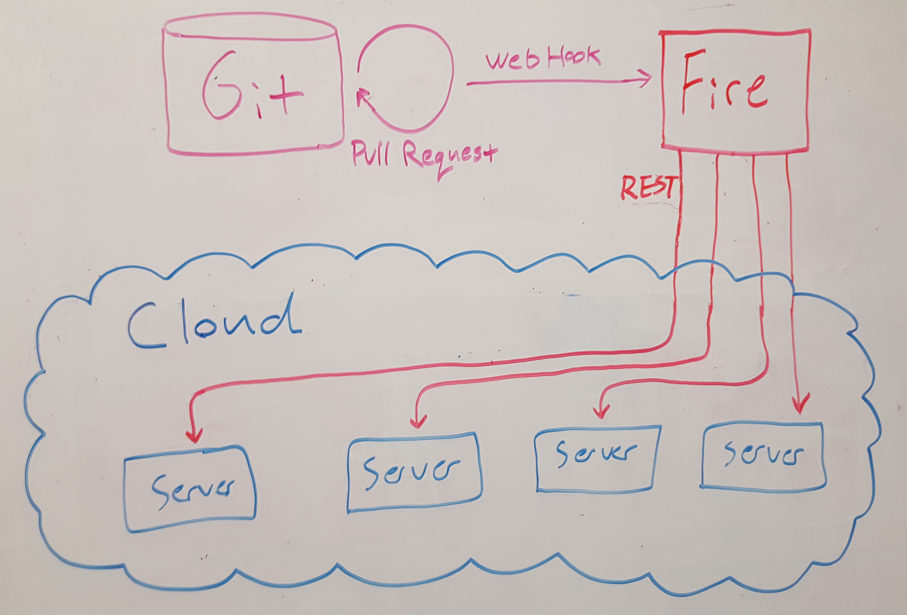 Git
Pull Request
WebHook
Fire
REST
Cloud
Server
Server
Server
Server